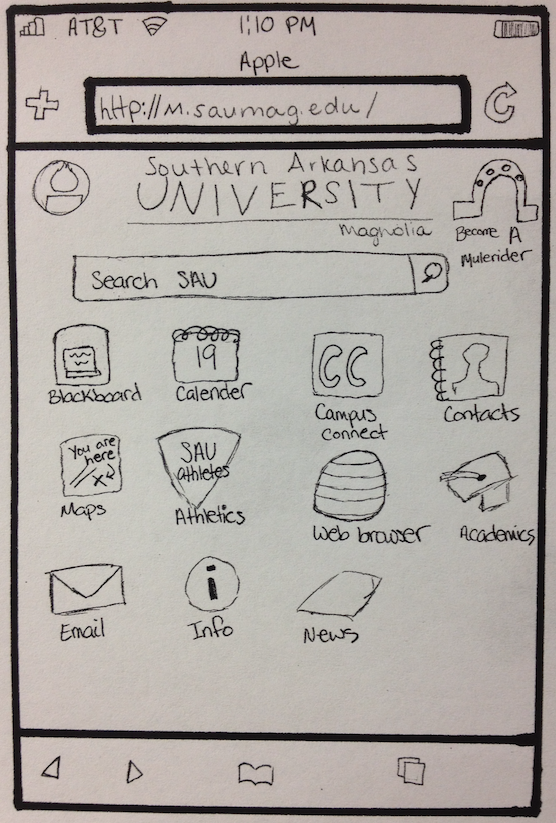 AT&T 1:10 PM
Apple
http://m.saumag.edu/
Southern Arkansas
UNIVERSITY
Magnolia
Become A
Mulerider
Search SAU
19
CC
Blackboard
Calender
Campus
Connect
Contacts
You are
here
Maps
SAU
athletes
Athletics
Web browser
Academics
Email
i
Info
News